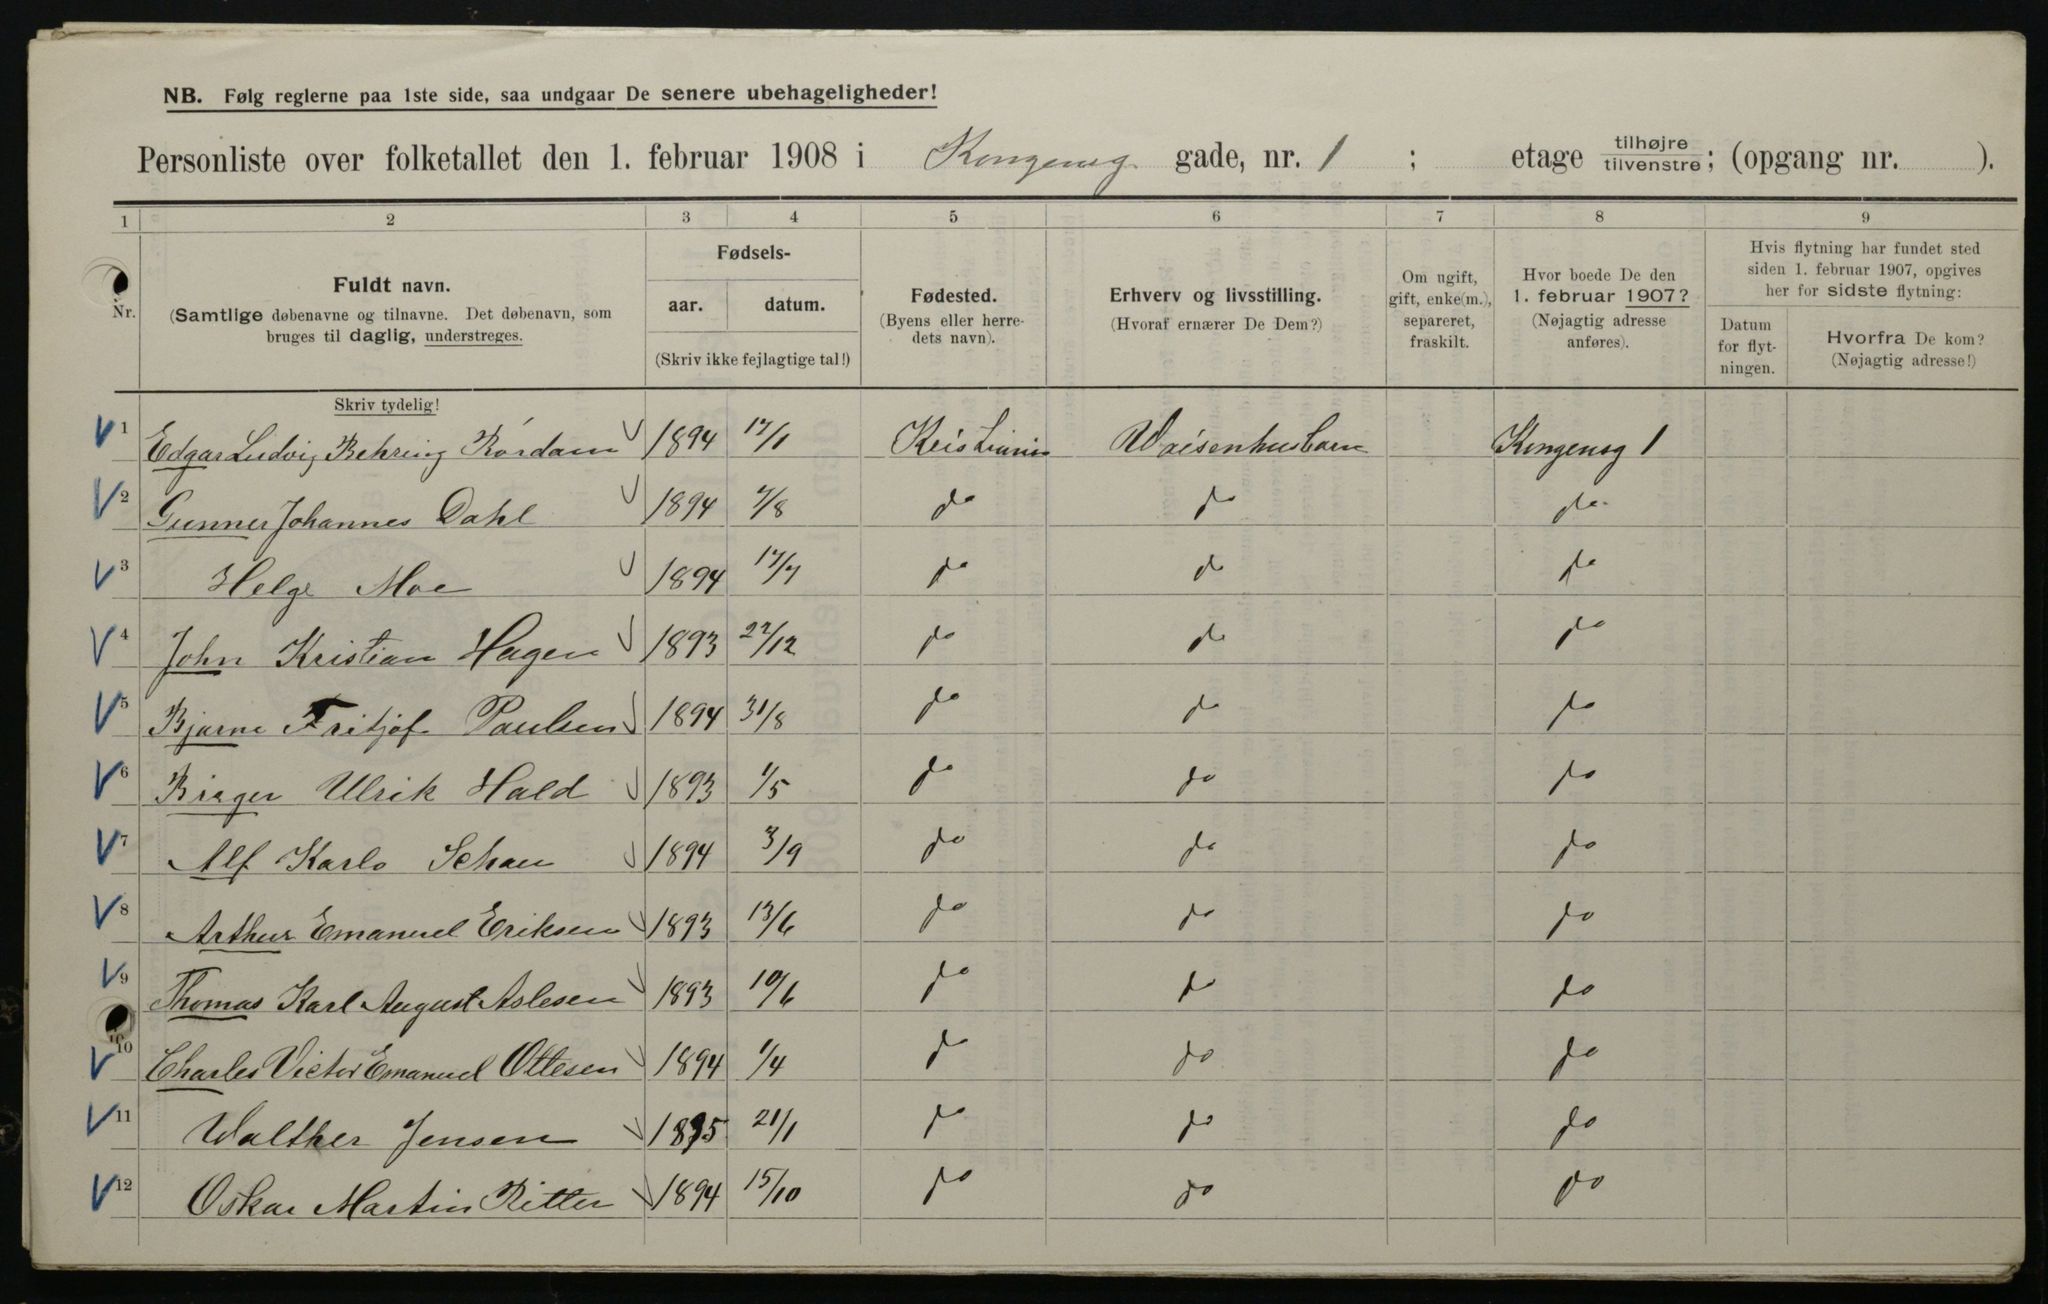 NB. Følg reglerne paa 1ste side, saa undgaar De senere ubehageligheder!
Personliste over folketallet den 1. februar 1908 i Kongensg gade, nr. 1 ; etage tilhøjre tilvenstre; (opgang nr. ).
1 2 3 4 5 6 7 8 9
Nr.
Fuldt navn.
(Samtlige døbenavne og tilnavne. Det døbenavn, som
bruges til daglig, understreges.
Skriv tydelig!
Fødsels-
aar. datum.
(Skriv ikke fejlagtige tal!)
Fødested.
(Byens eller herre-
dets navn).
Erhverv og livsstilling.
(Hvoraf ernærer De Dem?)
Om ugift,
gift, enke(m.),
separeret,
fraskilt.
Hvor boede De den
1. februar 1907?
(Nøjagtig adresse
anføres).
Hvis flytning har fundet sted
siden 1. februar 1907, opgives
her for sidste flytning:
Datum
for flyt-
ningen.
Hvorfra De kom?
(Nøjagtig adresse!)
1 Edgar Ludvig Behring Rórdam 1894 17/1 Kristiania Waisenhusbarn Kongensg 1
2 Gunner Johannes Dahl 1894 7/8 do do do
3 Helge Moe 1894 17/7 do do do
4 John Kristian Hagen 1893 22/12 do do do
5 Bjarne Fritjof Paulsen 1894 31/8 do do do
6 Birger Ulrik Hald 1893 1/5 do do do
7 Alf Karlo Schau 1894 3/9 do do do
8 Arthur Emanuel Eriksen 1893 13/6 do do do
9 Thomas Karl August Aslesen 1893 10/6 do do do
10 Charles Victor Emanuel Ottesen 1894 1/4 do do do
11 Walther Jensen 1895 21/1 do do do
12 Oskar Martin Ritter 1894 15/10 do do do